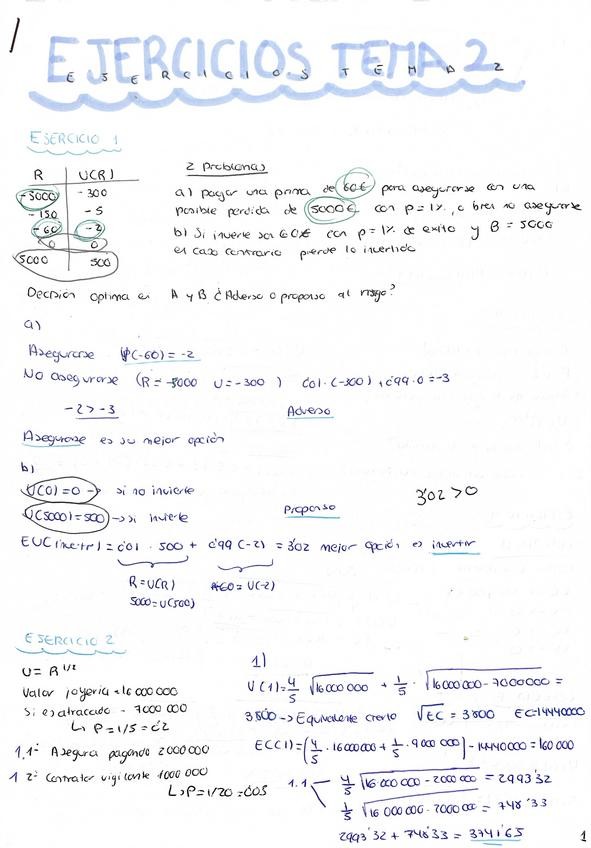 1
EJERCICIOS TEMA 2
E J E R C I C I O S T E M A 2
EJERCICIO 1
R U(R)
-5000 -300
-150 -5
-60 -2
0 0
5000 500
2 Problemas
a) pagar una prima de 60€ para asegurarse con una
posible perdida de 5000€ con p=1%, o bien no asegurarse
b) Si invierte son 60€ con p=1% de exito y B=5000
el caso contrario pierde lo invertido
Decisión optima en A y B ¿Adverso o propenso al riesgo?
a)
Asegurarse U(-60) = -2
No asegurarse (R=-5000 U=-300) 0'01·(-300)+0'99·0=-3
-2 > -3 Adverso
Asegurarse es su mejor opción
b)
U(0)=0 → si no invierte
3'02 > 0
U(5000)=500 → si invierte
Propenso
EU(invertir)= 0'01 · 500 + 0'99 (-2) = 3'02 mejor opción es invertir
R=U(R) -60=U(-2)
5000=U(500)
EJERCICIO 2
U = R^1/2
Valor joyería = 16 000 000
Si es atracado - 7000 000
↳ P=1/5=0'2
1.1º Asegura pagando 2000000
1 2º Contratar vigilante 1000 000
↳P=1/20=0'05
1)
U(1)= 4/5 √16 000 000 + 1/5 · √16 000 000 - 7000000 =
3'800 → Equivalente cierto √EC = 3'800 EC=14440000
EC(1)=(4/5 · 16000000 + 1/5 · 9 000 000) - 14440000 = 160 000
1.1 4/5 √16 000 000 - 2000 000 = 2993'32
1/5 √16 000 000 - 2000000 = 748'33
2993'32 + 748'33 = 3741'65
1